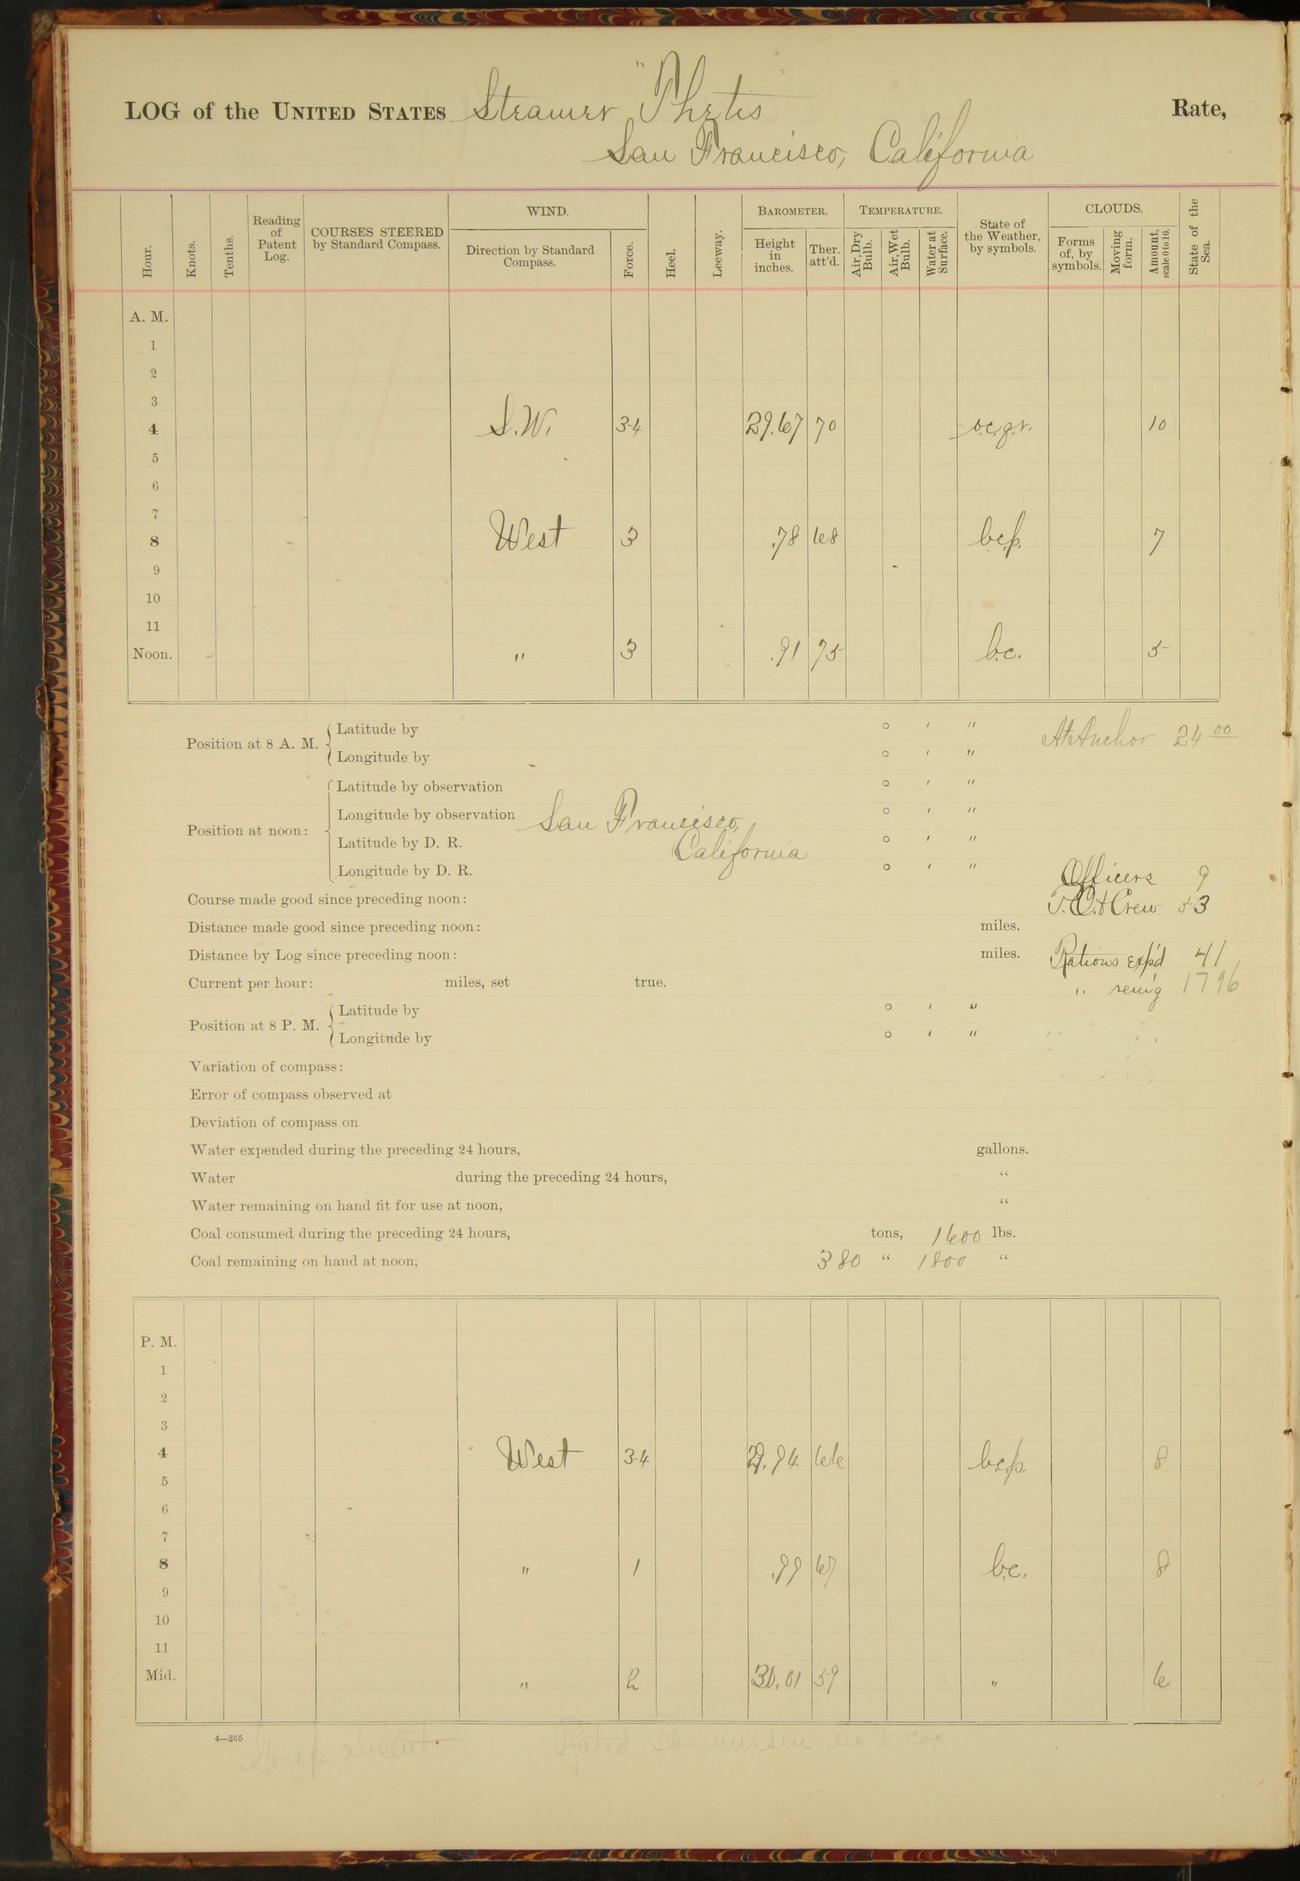 LOG of the UNITED STATES Steamer "Thetis" Rate,
San Francisco, California
Hour. Knots. Tenths. Reading of Patent Log. COURSES STEERED by Standard Compass. WIND. Direction by Standard Compass. Force. Heel. Leeway. BAROMETER. Height in inches. Ther. att'd. TEMPERATURE. Air, Dry Bulb. Air, Wet Bulb. Water at Surface. State of the Weather, by symbols. CLOUDS. Forms of, by symbols. Moving form. Amount, scale 0 to 10. State of the Sea.
A. M.
1
2
3
4 S.W. 3-4 29.67 70 o.c.q.r. 10
5
6
7
8 West 3 .78 68 b.c.p. 7
9
10
11
Noon. " 3 .91 75 b.c. 5
Position at 8 A. M. Latitude by ° ' " At Anchor 24 00
Longitude by ° ' "
Position at noon: Latitude by observation ° ' "
Longitude by observation San Francisco, ° ' "
Latitude by D. R. California ° ' "
Longitude by D. R. ° ' " Officers 9
Course made good since preceding noon: & Crew 43
Distance made good since preceding noon: miles.
Distance by Log since preceding noon: miles. Rations exp'd 41
Current per hour: miles, set true. " rem'g 1796
Position at 8 P. M. Latitude by ° ' "
Longitude by ° ' "
Variation of compass:
Error of compass observed at
Deviation of compass on
Water expended during the preceding 24 hours, gallons.
Water during the preceding 24 hours, "
Water remaining on hand fit for use at noon, "
Coal consumed during the preceding 24 hours, tons, 1600 lbs.
Coal remaining on hand at noon, 380 " 1800 "
P. M.
1
2
3
4 West 3-4 29.94 66 b.c.p. 8
5
6
7
8 " 1 .99 67 b.c. 8
9
10
11
Mid. " 2 30.01 59 " 6
4—265
absent. Rated Rasmussen sea to cox